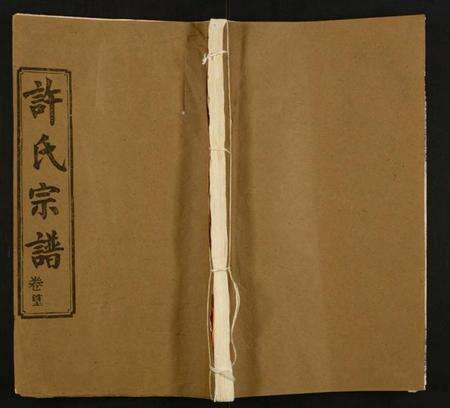 許氏宗譜
卷